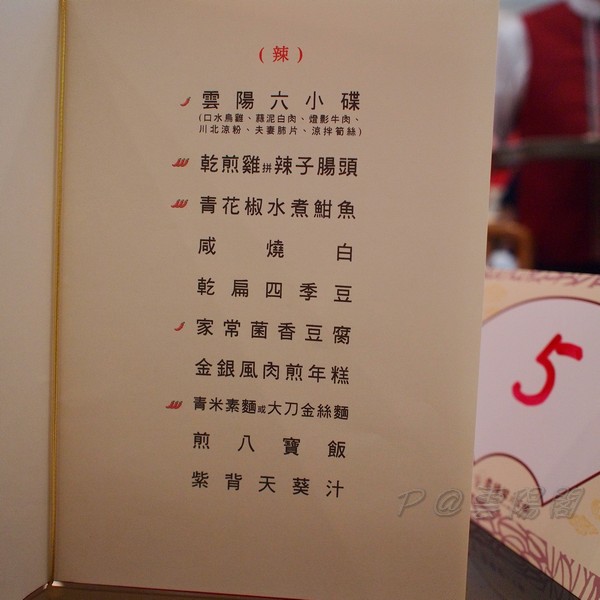 (辣)
雲陽六小碟
(口水鳥雞、蒜泥白肉、燈影牛肉、
川北涼粉、夫妻肺片、涼拌筍絲)
乾煎雞拼辣子腸頭
青花椒水煮鉗魚
咸燒白
乾扁四季豆
家常菌香豆腐
金銀風肉煎年糕
青米素麵或大刀金絲麵
煎八寶飯
紫背天葵汁
5
P@雲陽閣